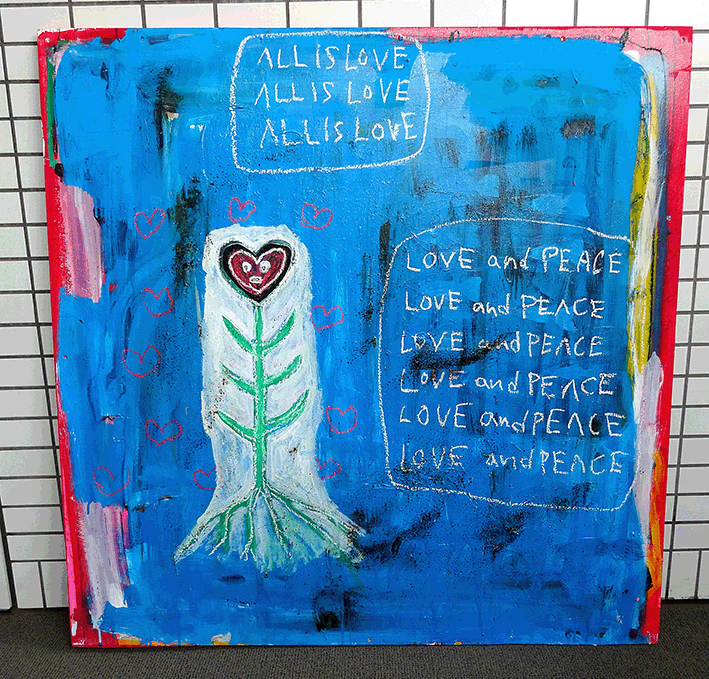 ALL IS LOVE
ALL IS LOVE
ALL IS LOVE
LOVE and PEACE
LOVE and PEACE
LOVE and PEACE
LOVE and PEACE
LOVE and PEACE
LOVE and PEACE